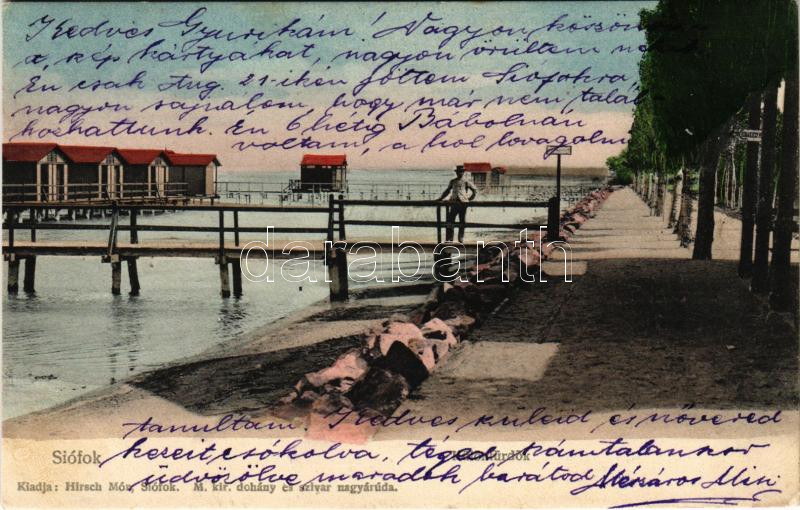 Kedves Gyurikám! Nagyon köszönöm
a kép kártyákat, nagyon örültem nekik
Én csak Aug. 21-ikén jöttem Siófokra
nagyon sajnálom, hogy már nem talál
kozhattunk. Én 6 hétig Bábolnán
voltam, a hol lovagolni
darabanth
tanultam. Kedves szüleid és nővered
kezeit csókolva, téged számtalanszor
Siófok
üdvözölve maradok barátod Mészáros Misi
Kiadja: Hirsch Mór, Siófok. M. kir. dohány és szivar nagyárúda.